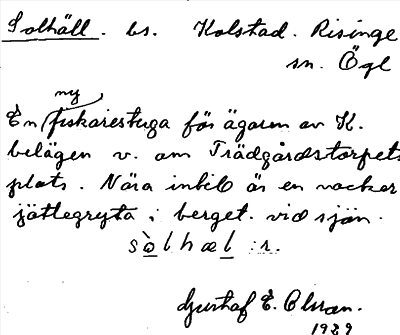 Solhäll. bs. Kolstad. Risinge
sn. Ögl
ny
En fiskarestuga för ägaren av K.
belägen v. om Trädgårdstorpets
plats. Nära intill är en vacker
jättegryta i berget. vid sjön.
sòlhæl :r.
Gustaf E. Olsson.
1929